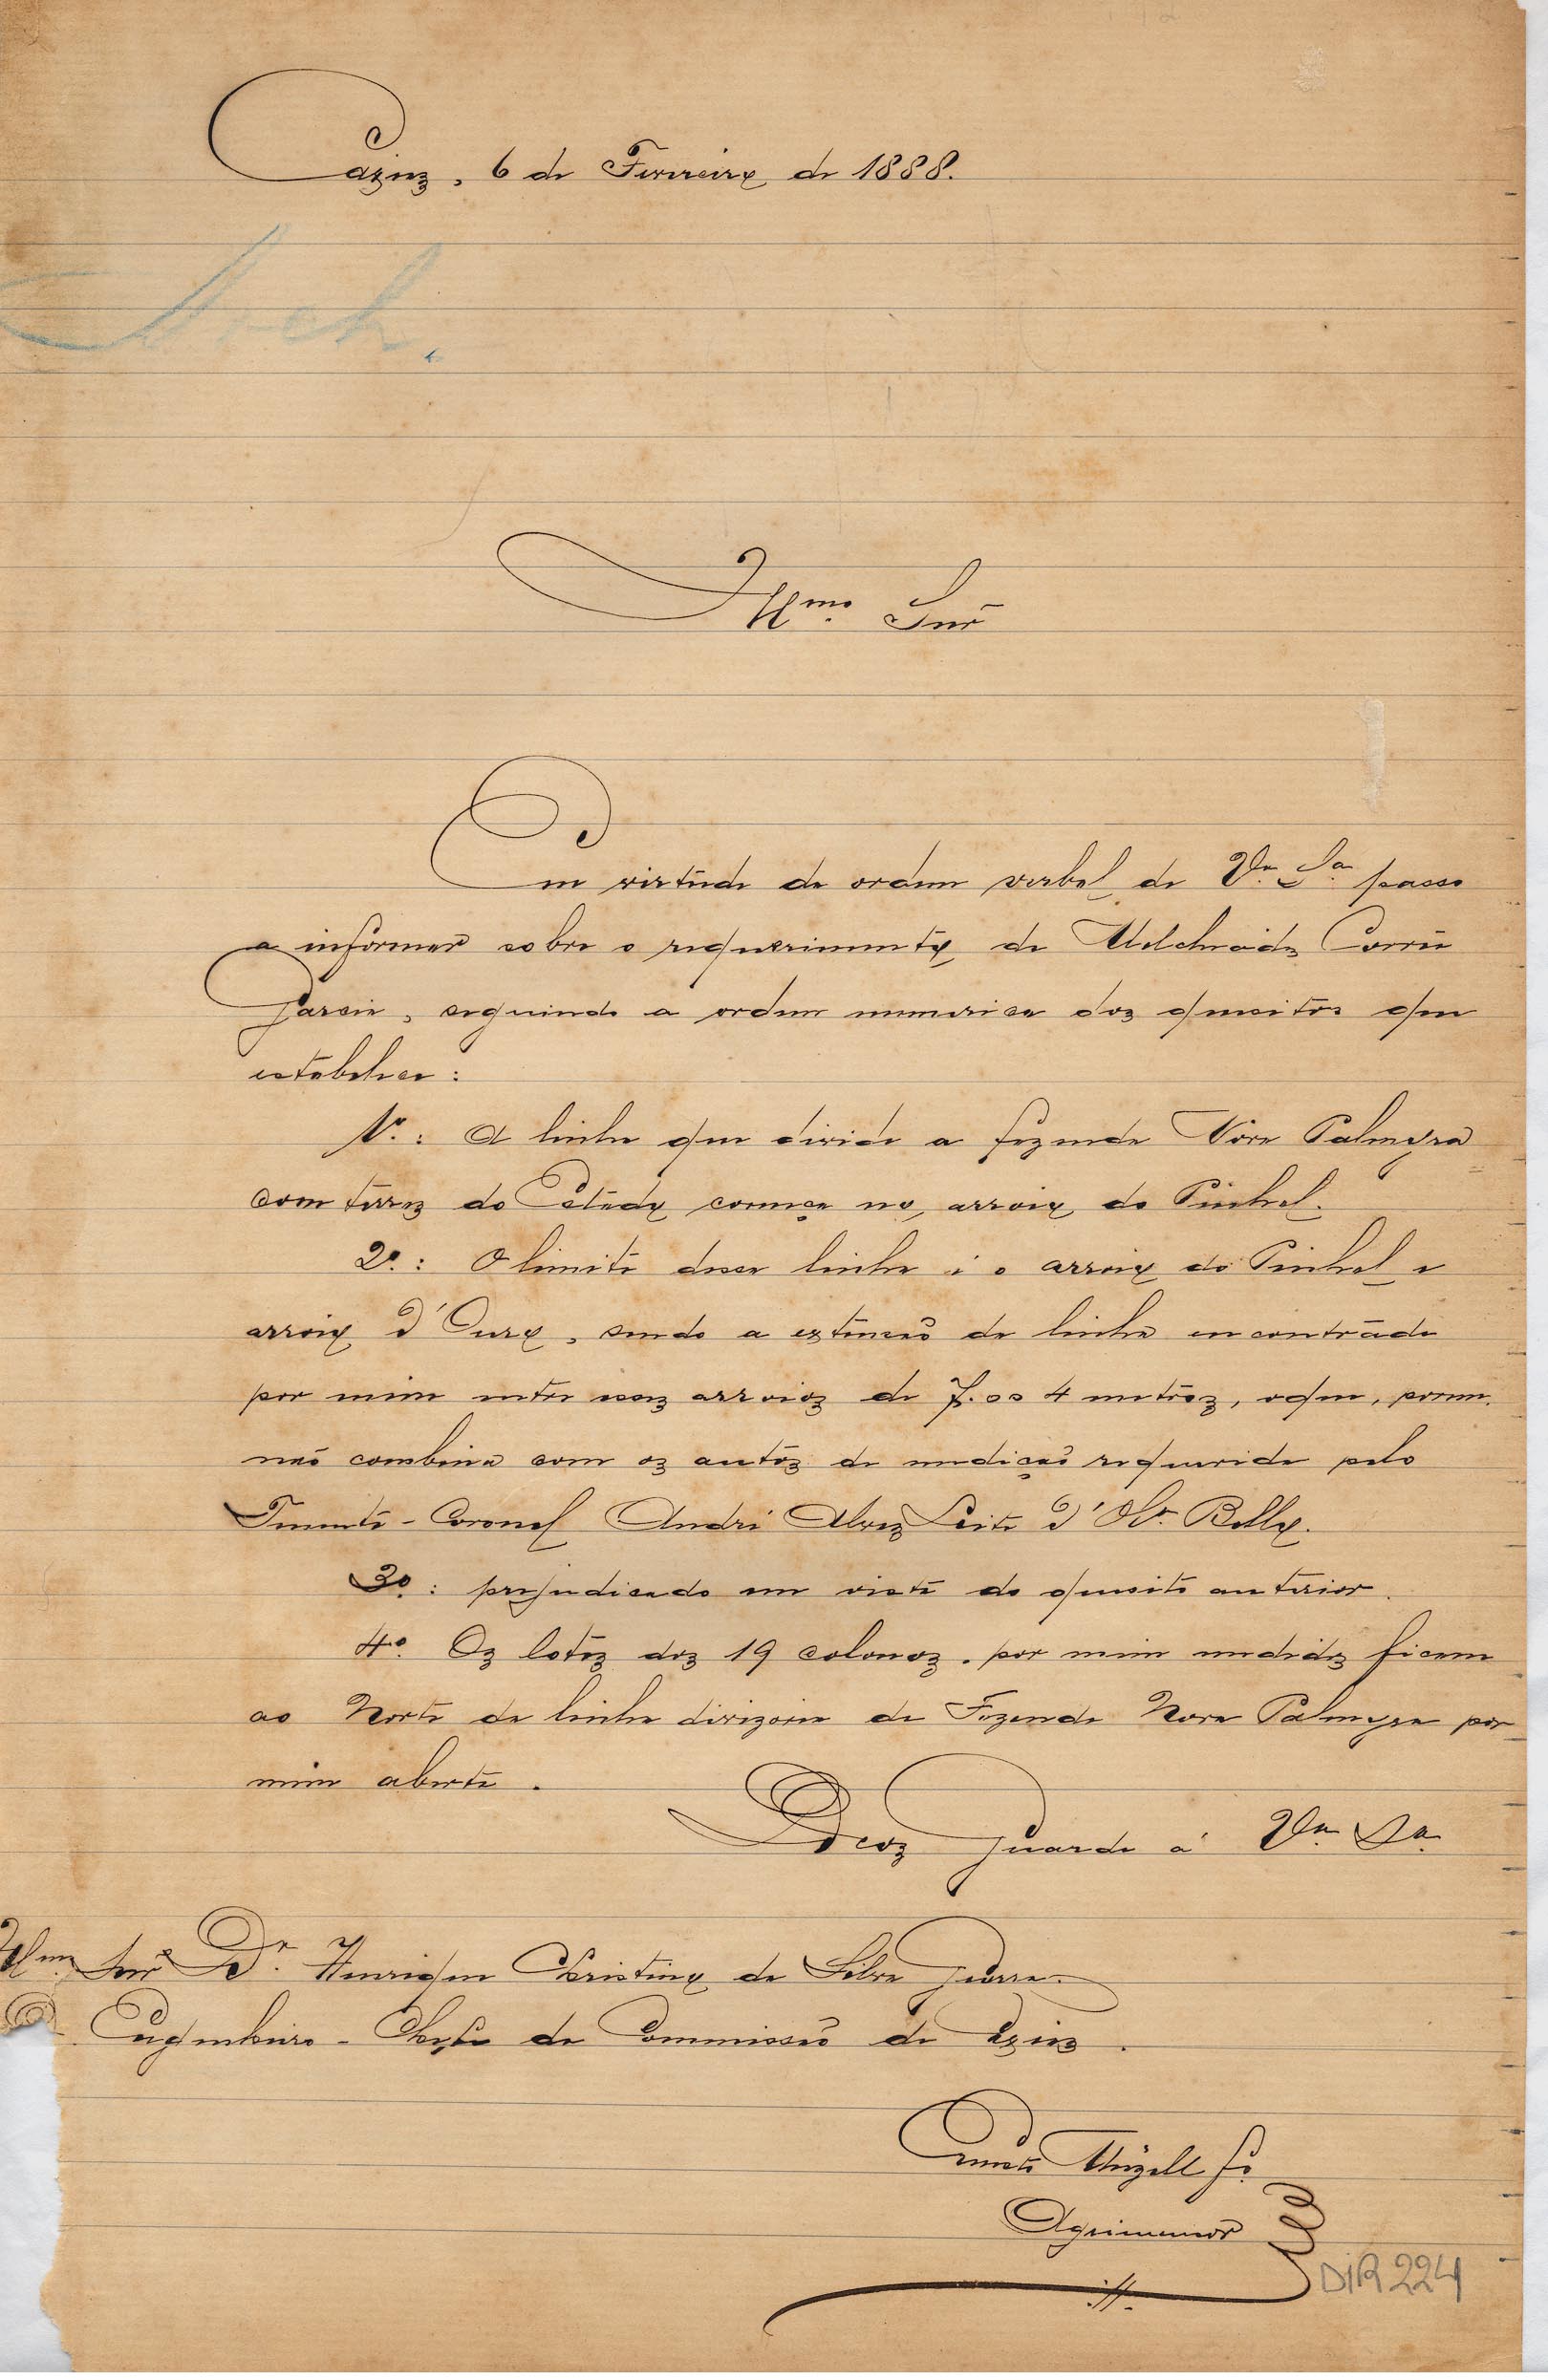 Caxias, 6 de Fevereiro de 1888.
Arch.
Illmo. Snr
Em virtude da ordem verbal de Va. Sa. passo
a informar sobre o requerimento de Melchiades Corrêa
Garcia, seguindo a ordem numerica dos quesitos que
estabelece:
1º.: A linha que divide a fazenda Nova Palmyra
com terras do Estado começa no arroio do Pinhal.
2º.: O limite dessa linha é o arroio do Pinhal e
arroio d'Ouro, sendo a extensão da linha encontrada
por mim entre esses arroios de 7.004 metros, o que, porem,
não combina com os autos de medição requerida pelo
Tenente-Coronel André Alves Leite d'Olva. Bello.
3º.: prejudicado em vista do quesito anterior.
4º. Os lotes dos 19 colonos, por mim medidos ficam
ao Norte da linha divizoria da Fazenda Nova Palmyra por
mim aberta.
Deos Guarde á Va. Sa.
Illmo. Snr. Dr. Henrique Christino da Silva Guerra.
Engenheiro-Chefe da Commissão de Caxias.
Ernesto Müzell fo.
Agrimensor
DIR 224